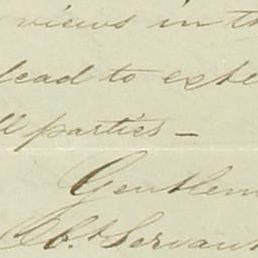 views in th
lead to exte
ll parties —
Gentlem
Obt Servant